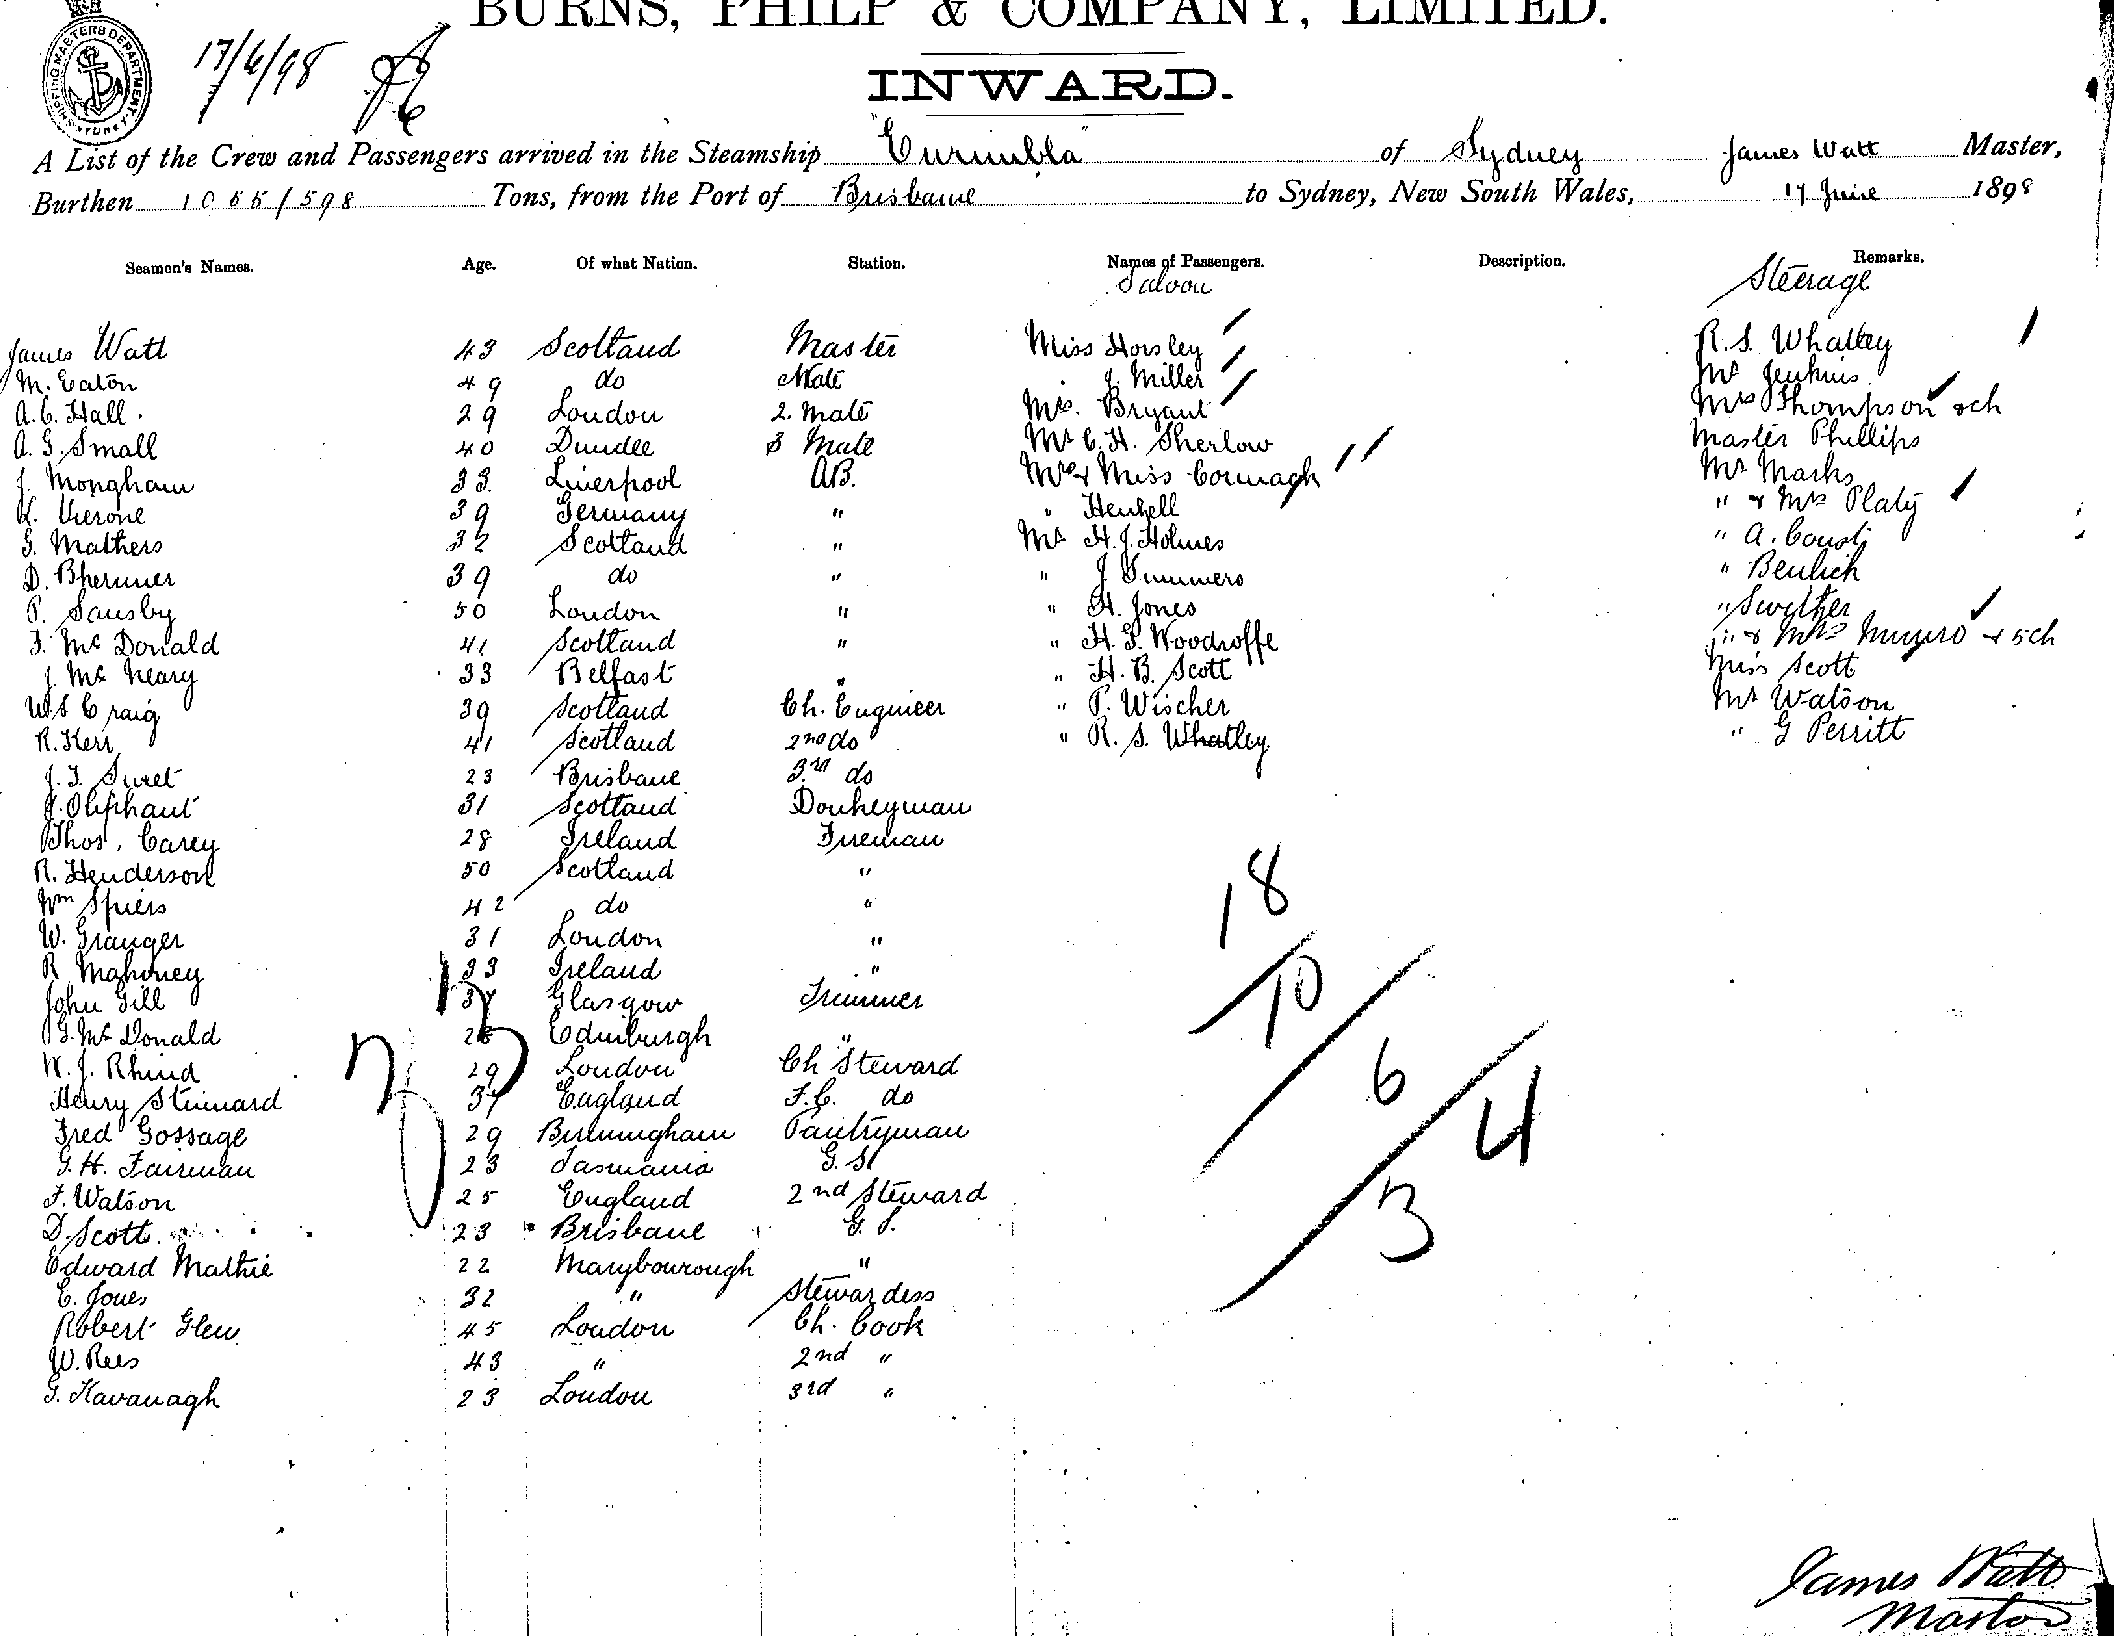 BURNS, PHILP & COMPANY, LIMITED.
SHIPPING MASTERS DEPARTMENT. SYDNEY
17/6/98
INWARD.
A List of the Crew and Passengers arrived in the Steamship "Eurimbla" of Sydney James Watt Master,
Burthen 1055/598 Tons, from the Port of Brisbane to Sydney, New South Wales, 17 June 1898
Seamen's Names. Age. Of what Nation. Station. Names of Passengers. Description. Remarks.
Saloon Steerage
James Watt 43 Scotland Master Miss Horsley R. S. Whatley
M. Eaton 49 do Mate " J. Miller Mr Jenkins
A. C. Hall. 29 London 2. Mate Mrs. Bryant Mrs Thompson & ch
A. G. Small 40 Dundee 3 Mate Mr C. H. Sherlow Master Phillips
J. Mongham 33. Liverpool AB. Mrs & Miss Cormagh Mr Marks
Vierone 39 Germany " " Henkell " & Mrs Platy
G. Mathers 32 Scotland " Mr H. J. Holmes " A.
D. 39 do " " J Summers " Beulich
P. Sansby 50 London " " H. Jones " Swither
F. Mc Donald 41 Scotland " " H. G. Woodroffe " & Mrs Munro & 5 ch
J. Mc Neary 33 Belfast " " H. B. Scott Miss Scott
W. S Craig 39 Scotland Ch. Engineer " P. Wischer Mr Watson
R. Kerr 41 Scotland 2nd do " R. S. Whatley " G Perritt
J. F. 23 Brisbane 3rd do
J. Oliphant 31 Scotland Donkeyman
Thos. Carey 28 Ireland Fireman
R. Henderson 50 Scotland "
Wm Spiers 42 do "
W. Granger 31 London "
R Mahoney 33 Ireland "
John Gill 37 Glasgow Trimmer
G. Mc Donald 26 Edinburgh "
W. J. Rhind 29 London Ch Steward
Henry Stennard 37 England F. C. do
Fred Gossage 29 Birmingham Pantryman
G. H. Fairman 23 Tasmania G. S
F. Watson 25 England 2nd Steward
D. Scott. 23 Brisbane G. S.
Edward Mathie 22 Marybourough "
E. Jones 32 " Stewardess
Robert Glew 45 London Ch. Cook
W. Rees 43 " 2nd "
G. Kavanagh 23 London 3rd "
18
10
6
4
3
James Watt
Master